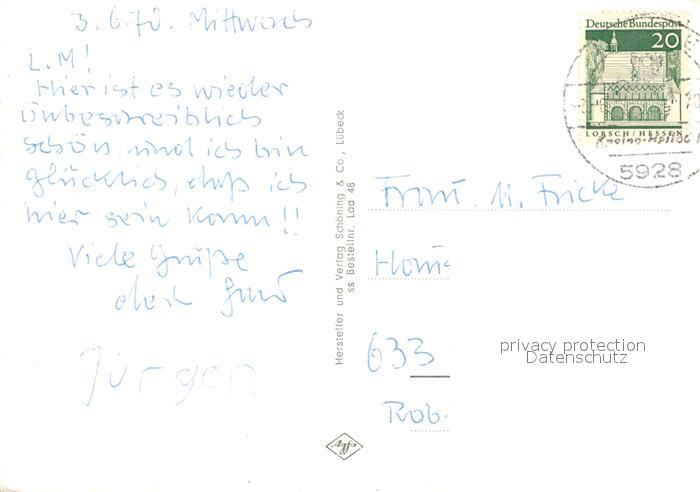 3.6.70. Mittwoch
L.M!
Hier ist es wieder
unbeschreiblich
schön, und ich bin
glücklich, daß ich
hier sein kann!!
Viele Grüße
dein
Jürgen
Hersteller und Verlag Schöning & Co., Lübeck
ss Bestellnr. Laa 48
Agfa
Deutsche Bundespost
20
LORSCH/HESSEN
5928
Frau. M. Fricke
633
Rob.
privacy protection
Datenschutz